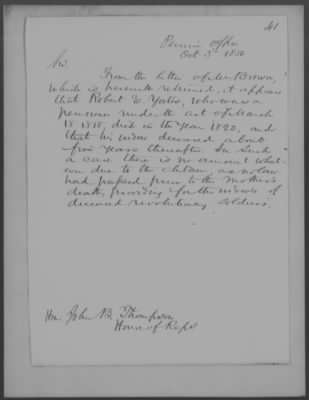 41
Pension Office
Oct 3d
Sir.
From the letter of Mr Brown,
which is herewith returned, it appears
that Robert E. Yates, who was a
pensioner under the act of March
18 1818, died in the year 1820, and
that his widow deceased about
five years thereafter. In such
a case there is no amount what-
ever due to the children, as no law
had passed prior to the mother's
death, providing for the widows of
deceased revolutionary soldiers.
Hon. John B. Thompson
House of Reps